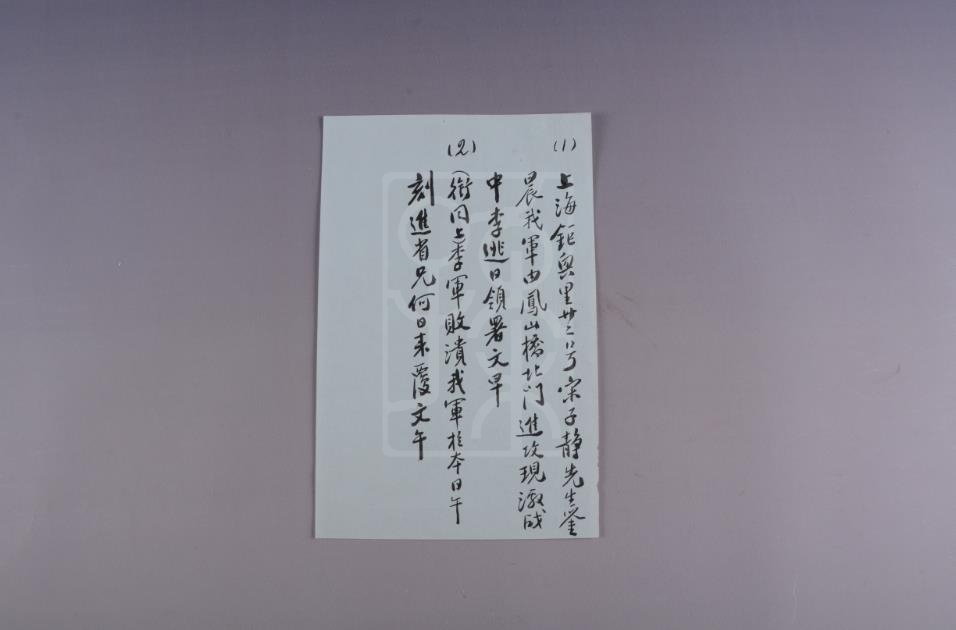 (1)
上海鉅興里廿二号宋子靜先生鉴
晨我軍由鳳山橋北門進攻現激战
中李逃日領署文早
(2)
(銜同上)李軍敗潰我軍於本日午
刻進省兄何日来覆文午